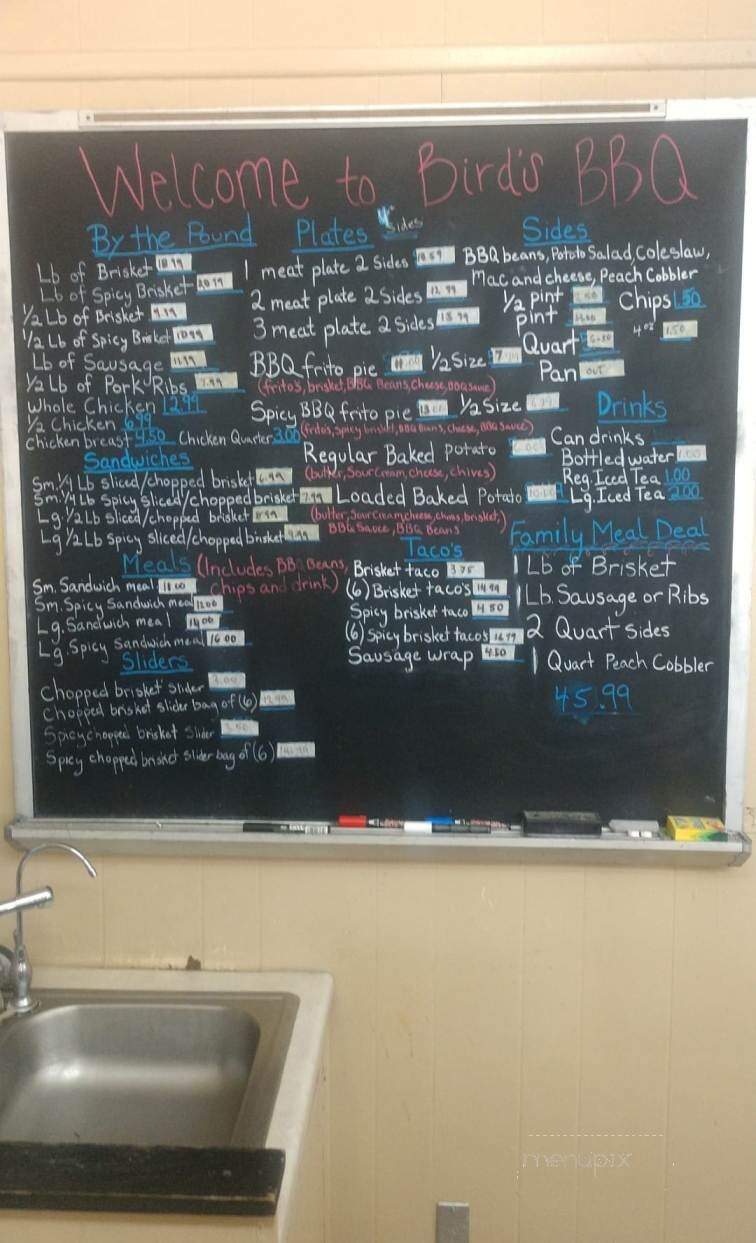 Welcome to Bird's BBQ
By the Pound
Lb of Brisket 18.99
Lb of Spicy Brisket 20.99
1/2 Lb of Brisket 9.99
1/2 Lb of Spicy Brisket 10.99
Lb of Sausage
1/2 Lb of Pork Ribs 7.99
Whole Chicken 12.99
1/2 Chicken 6.99
Chicken breast 4.50 Chicken Quarter 3.00
Sandwiches
Sm. 1/4 Lb sliced/chopped brisket 6.99
Sm. 1/4 Lb Spicy sliced/chopped brisket 7.99
Lg. 1/2 Lb sliced/chopped brisket 8.99
Lg 1/2 Lb spicy sliced/chopped brisket 9.99
Meals (Includes BBQ Beans, chips and drink)
Sm. Sandwich meal 11.00
Sm. Spicy Sandwich meal 12.00
Lg. Sandwich meal
Lg. Spicy Sandwich meal 16.00
Sliders
Chopped brisket slider 3.00
Chopped brisket slider bag of (6)
Spicy chopped brisket Slider 3.50
Spicy chopped brisket slider bag of (6)
Plates
Sides
1 meat plate 2 Sides
2 meat plate 2 Sides 12.99
3 meat plate 2 Sides
BBQ frito pie 1/2 Size
(frito's, brisket, BBQ Beans, Cheese, BBQ Sauce)
Spicy BBQ frito pie 1/2 Size
(frito's, spicy brisket, BBQ Beans, Cheese, BBQ Sauce)
Regular Baked Potato
(butter, Sour Cream, cheese, chives)
Loaded Baked Potato
(butter, Sour Cream, cheese, chives, brisket,)
BBQ Sauce, BBQ Beans
Taco's
Brisket taco 3.75
(6) Brisket taco's 14.99
Spicy brisket taco 4.50
(6) Spicy brisket taco's 16.99
Sausage wrap 4.50
Sides
BBQ beans, Potato Salad, Coleslaw,
Mac and cheese, Peach Cobbler
1/2 pint Chips 1.50
pint
4 oz 1.50
Quart
Pan out
Drinks
Can drinks
Bottled water 1.00
Reg. Iced Tea 1.00
Lg. Iced Tea 2.00
Family Meal Deal
1 Lb of Brisket
1 Lb. Sausage or Ribs
2 Quart sides
1 Quart Peach Cobbler
45.99
menupix